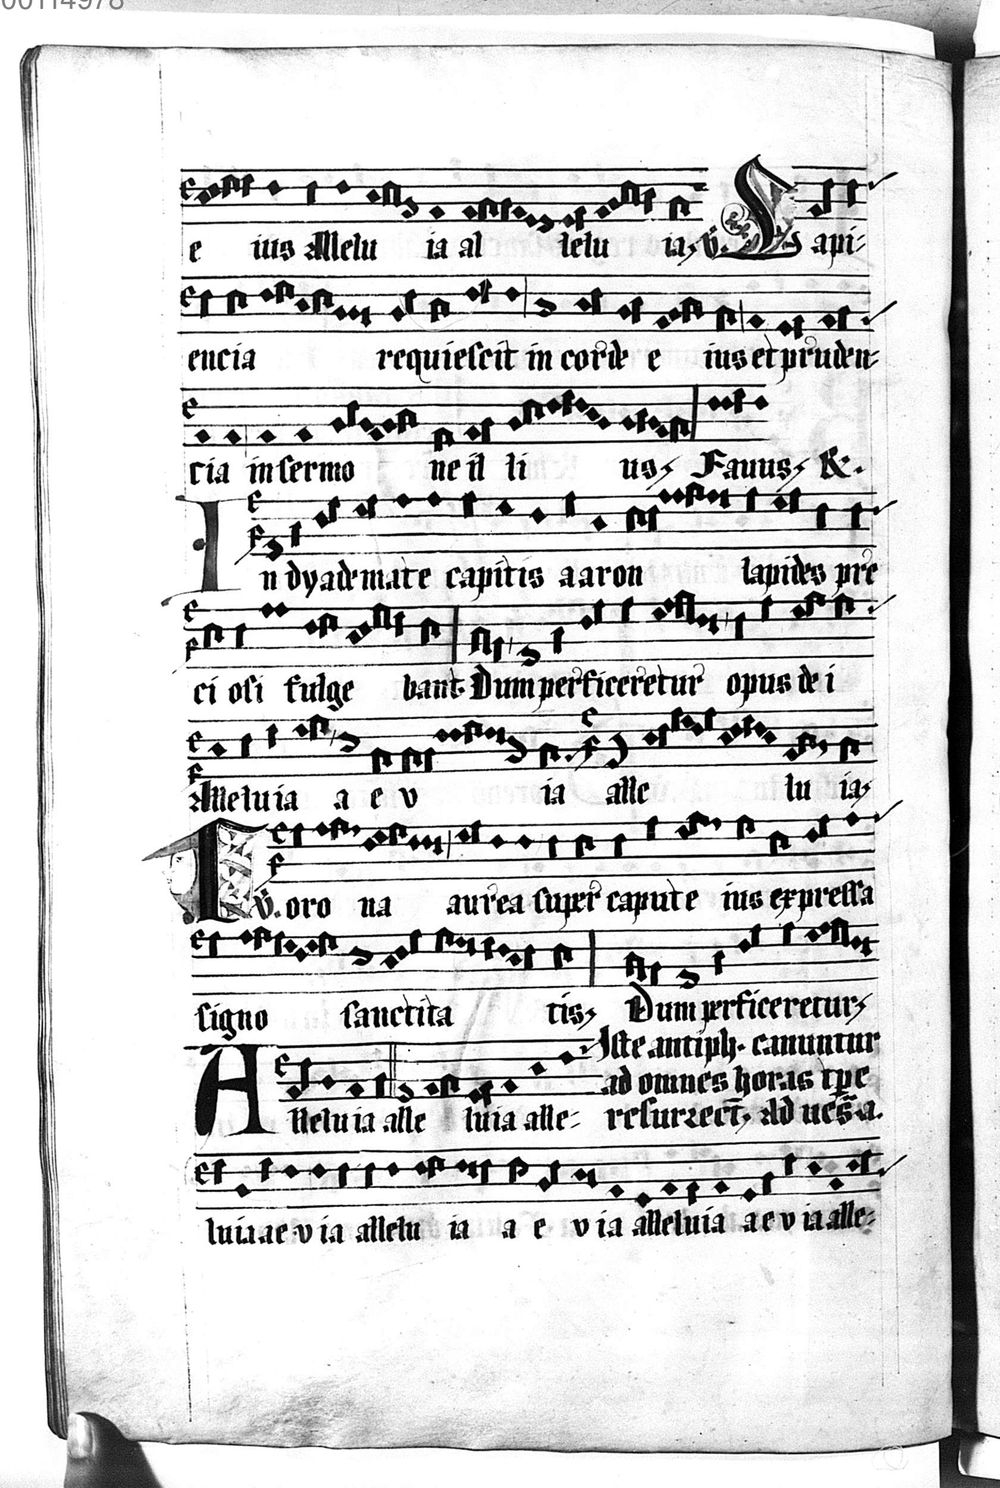 00114978
e ius Allelu ia al lelu ia, v. Sapi-
encia requiescit in corde e ius et pruden-
cia in sermo ne il li us, Fauus, &.
In dyademate capitis aaron lapides pre
ci osi fulge bant Dum perficeretur opus de i
Alleluia a e v ia alle lu ia,
v. Coro na aurea super caput e ius expressa
signo sanctita tis, Dum perficeretur,
Iste antiph. canuntur
ad omnes horas tpe
Alleluia alle luia alle- resurrect, Ad ves.a.
luia a e v ia allelu ia a e v ia alleluia a e v ia alle-